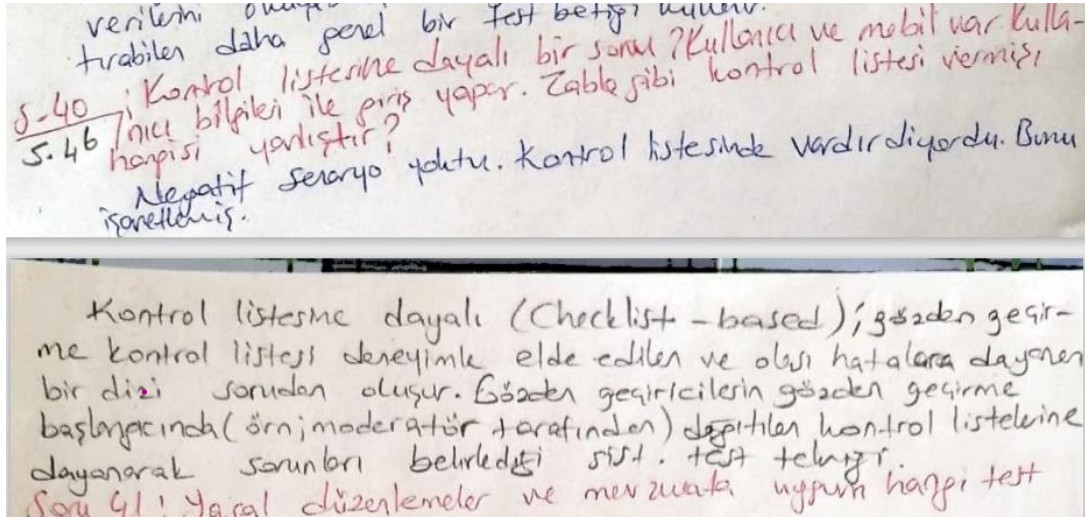 verilerini
tırabilen daha genel bir test betiği
S-40 ; Kontrol listesine dayalı bir soru ? Kullanıcı ve mobil var kulla-
S.46 nıcı bilgileri ile giriş yapar. Table gibi kontrol listesi vermiş,
hangisi yanlıştır?
Negatif senaryo yoktu. Kontrol listesinde vardır diyordu. Bunu
işaretlemiş.
Kontrol listesine dayalı (Checklist-based); gözden geçir-
me kontrol listesi deneyimle elde edilen ve olası hatalara dayanan
bir dizi sorudan oluşur. Gözden geçiricilerin gözden geçirme
başlangıcında (örn; moderatör tarafından) dağıtılan kontrol listelerine
dayanarak sorunları belirlediği sist. test tekniği.
Soru 41: Yasal düzenlemeler ve mevzuata uygun hangi test